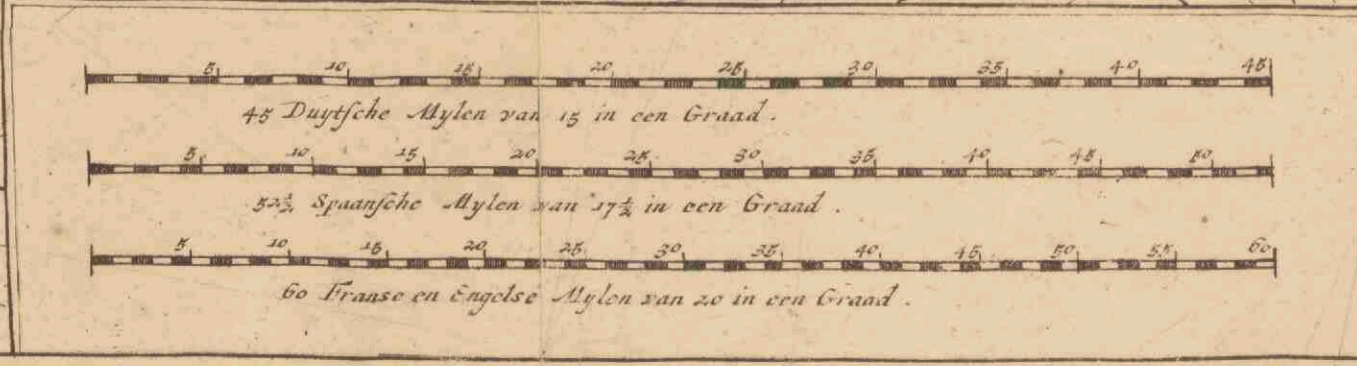 5 10 15 20 25 30 35 40 45
45 Duytſche Mylen van 15 in een Graad.
5 10 15 20 25 30 35 40 45 50
52½ Spaanſche Mylen van 17½ in een Graad.
5 10 15 20 25 30 35 40 45 50 55 60
60 Franse en Engelse Mylen van 20 in een Graad.